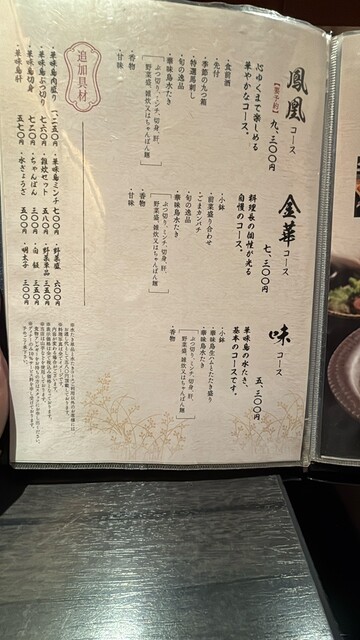 鳳凰コース
【要予約】九、三〇〇円
心ゆくまで楽しめる
華やかなコース。
・食前酒
・先付
・季節の九つ箱
・特選馬刺し
・旬の逸品
・華味鳥水たき
ぶつ切り、ミンチ、切身、肝、
野菜盛、雑炊又はちゃんぽん麺
・香物
・甘味
金華コース
七、三〇〇円
料理長の個性が光る
自慢のコース。
・小鉢
・前菜盛り合わせ
・ごまカンパチ
・旬の逸品
・華味鳥水たき
ぶつ切り、ミンチ、切身、肝、
野菜盛、雑炊又はちゃんぽん麺
・香物
・甘味
味コース
五、三〇〇円
華味鳥の水たき、
基本のコースです。
・小鉢
・華味鳥生ハムとたたき盛り
・華味鳥水たき
ぶつ切り、ミンチ、切身、肝、
野菜盛、雑炊又はちゃんぽん麺
・香物
追加具材
・華味鳥肉盛り 一、二五〇円
・華味鳥ぶつ切り 七六〇円
・華味鳥切身 七二〇円
・華味鳥肝 五七〇円
・華味鳥ミンチ 七〇〇円
・雑炊セット 五五〇円
・ちゃんぽん 三〇〇円
・水ぎょうざ 五〇〇円
・野菜盛 六〇〇円
・野菜単品 三五〇円
・白飯 三五〇円
・明太子 三〇〇円